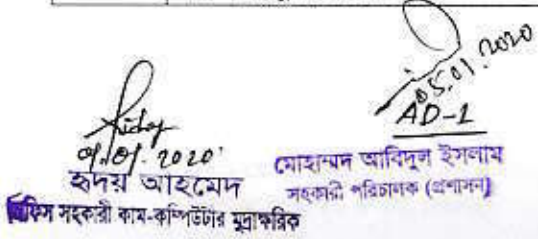 Ridoy
05.01.2020
AD-1
হৃদয় আহমেদ
অফিস সহকারী কাম-কম্পিউটার মুদ্রাক্ষরিক
মোহাম্মদ আবিদুল ইসলাম
সহকারী পরিচালক (প্রশাসন)